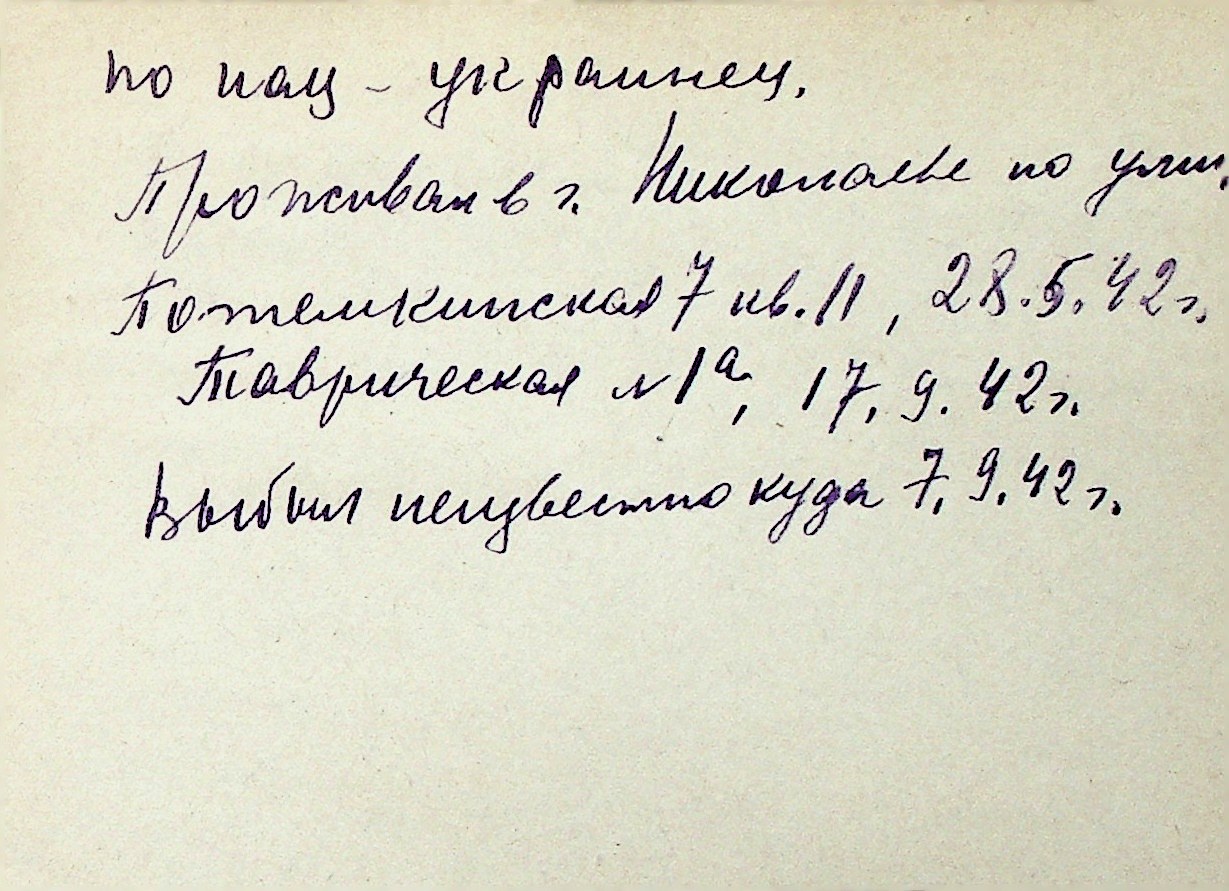 по нац – украинец.
Проживал в г. Николаеве по улиц.
Потемкинская 7 кв. 11, 28.5.42 г.
Таврическая № 1а, 17.9.42 г.
Выбыл неизвестно куда 7.9.42 г.